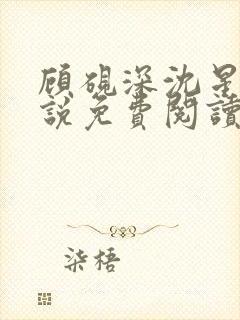 顧硯深沈星
說免費閱讀
柒梧